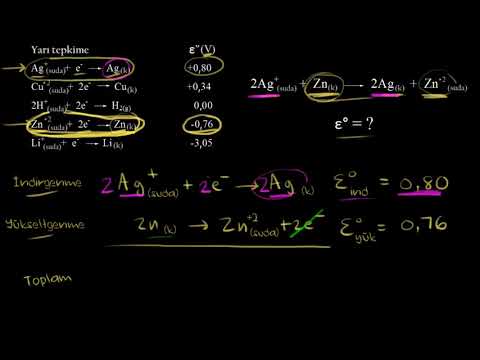 Yarı tepkime ε°(V)
Ag⁺(suda) + e⁻ → Ag(k) +0,80
Cu⁺²(suda) + 2e⁻ → Cu(k) +0,34
2H⁺(suda) + 2e⁻ → H₂(g) 0,00
Zn⁺²(suda) + 2e⁻ → Zn(k) -0,76
Li⁺(suda) + e⁻ → Li(k) -3,05
2Ag⁺(suda) + Zn(k) → 2Ag(k) + Zn⁺²(suda)
ε° = ?
İndirgenme 2Ag⁺(suda) + 2e⁻ → 2Ag(k) ε°ind = 0,80
Yükseltgenme Zn(k) → Zn⁺²(suda) + 2e⁻ ε°yük = 0,76
Toplam